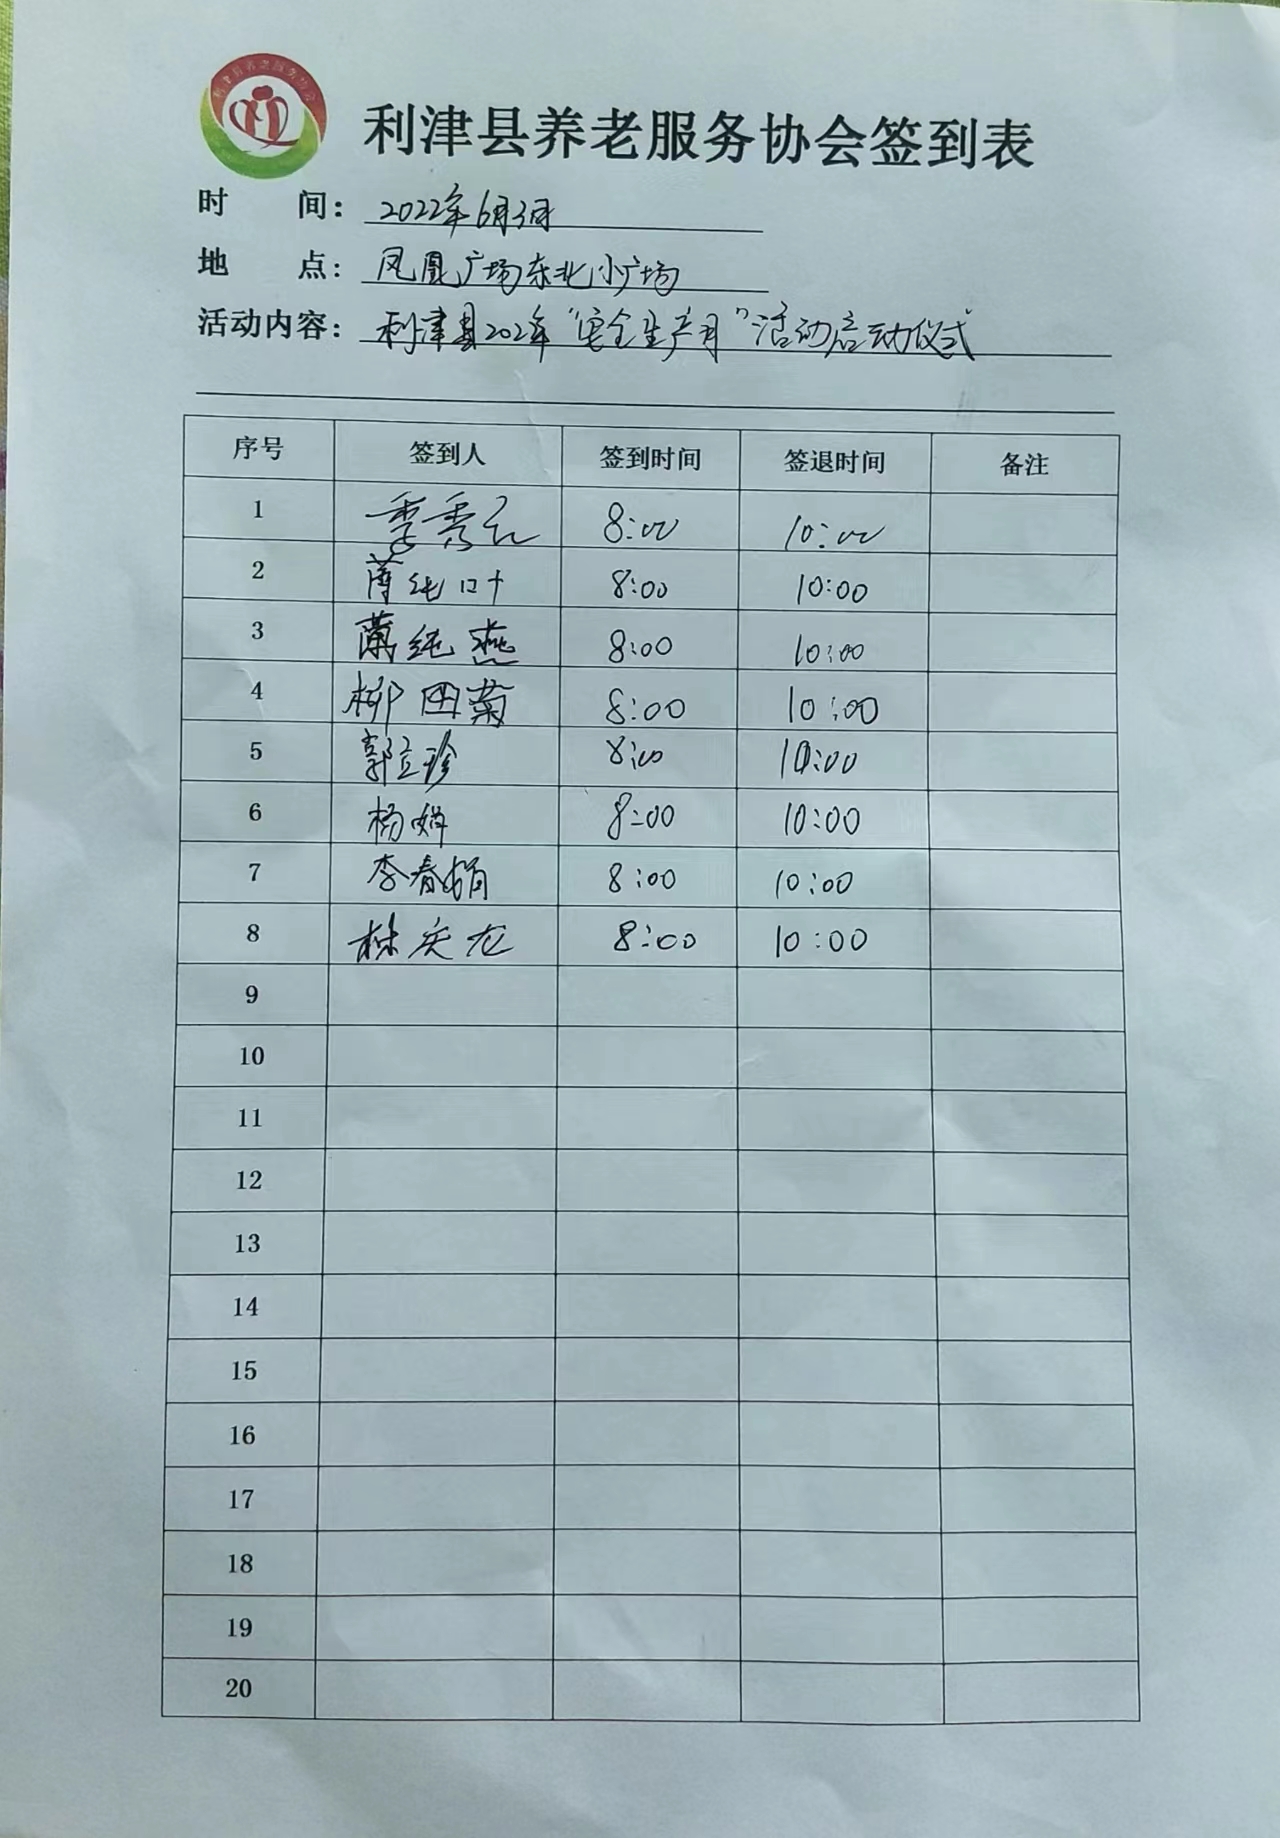 利津县养老服务协会
利津县养老服务协会签到表
时 间：2022年6月3日
地 点：凤凰广场东北小广场
活动内容：利津县202年“安全生产月”活动启动仪式
序号 签到人 签到时间 签退时间 备注
1 季秀元 8:00 10:00
2 薄纯叶 8:00 10:00
3 蔺纯燕 8:00 10:00
4 柳田菊 8:00 10:00
5 郭立珍 8:00 10:00
6 杨娟 8:00 10:00
7 李春娟 8:00 10:00
8 林庆龙 8:00 10:00
9
10
11
12
13
14
15
16
17
18
19
20